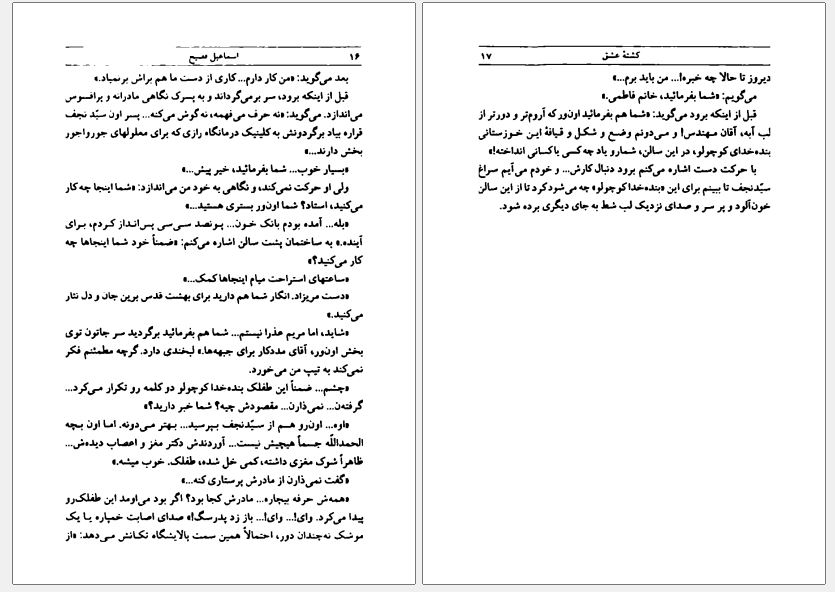 ۱۶ اسماعیل فصیح
بعد می‌گوید: «من کار دارم... کاری از دست ما هم براش برنمیاد.»
قبل از اینکه برود، سر برمی‌گرداند و به پسرک نگاهی مادرانه و پرافسوس
می‌اندازد. می‌گوید: «نه حرف می‌فهمه، نه گوش می‌کنه... پسر اون سیّد نجف
قراره بیاد برگردونش به کلینیک درمانگاه رازی که برای معلولهای جورواجور
بخش دارند...»
«بسیار خوب... شما بفرمائید، خیر پیش...»
ولی او حرکت نمی‌کند، و نگاهی به خود من می‌اندازد: «شما اینجا چه کار
می‌کنید، استاد؟ شما اون‌ور بستری هستید...»
«بله... آمده بودم بانک خـون... پـونصد سـی‌سی پس‌انـداز کـردم، بـرای
آینده.» به ساختمان پشت سالن اشاره می‌کنم: «ضمناً خود شما اینجاها چه
کار می‌کنید؟»
«ساعتهای استراحت میام اینجاها کمک...»
«دست مریزاد. انگار شما هم دارید برای بهشت قدس برین جان و دل نثار
می‌کنید.»
«شـاید، اما مریم عذرا نیستم... شما هم بفرمائید برگردید سر جاتون توی
بخش اون‌ور، آقای مددکار برای جبهه‌ها.» لبخندی دارد. گرچه مطمئنم فکر
نمی‌کند به تیپ من می‌خورد.
«چشم... ضمناً این طفلک بنده‌خدا کوچولو دو کلمه رو تکرار مـی‌کرد...
گرفته‌ن... نمی‌ذارن... مقصودش چیه؟ شما خبر دارید؟»
«اوه... اون‌رو هـم از سـیّدنجف بـپرسید... بـهتر مـی‌دونه. امـا اون بـچه
الحمداللّه جسماً هیچیش نیست... آوردندش دکتر مغز و اعصاب دیده‌ش...
ظاهراً شوک مغزی داشته، کمی خل شده، طفلک. خوب میشه.»
«گفت نمی‌ذارن از مادرش پرستاری کنه...»
«همه‌ش حرفه بیچاره... مادرش کجا بود؟ اگر بود می‌اومد این طفلک‌رو
پیدا می‌کرد. وای!... وای!... باز زد پدرسگ!» صدای اصابت خمپاره یـا یک
موشک نه‌چندان دور، احتمالاً همین سمت پالایشگاه تکانش مـی‌دهد: «از
کشتهٔ عشق ۱۷
دیروز تا حالا چه خبره!... من باید برم...»
می‌گویم: «شما بفرمائید، خانم فاطمی.»
قبل از اینکه برود می‌گوید: «شما هم بفرمائید اون‌ور که آروم‌تر و دورتر از
لب آبه، آقان مـهندس! و مـی‌دونم وضـع و شکـل و قـیافهٔ ایـن خـوزستانی
بنده‌خدای کوچولو، در این سالن، شمارو یاد چه کسی یا کسانی انداخته!»
با حرکت دست اشاره می‌کنم برود دنبال کارش... و خودم می‌آیم سراغ
سیّدنجف تا ببینم برای این «بنده‌خدا کوچولو» چه می‌شود کرد تا از این سالن
خون‌آلود و پر سر و صدای نزدیک لب شط به جای دیگری برده شود.